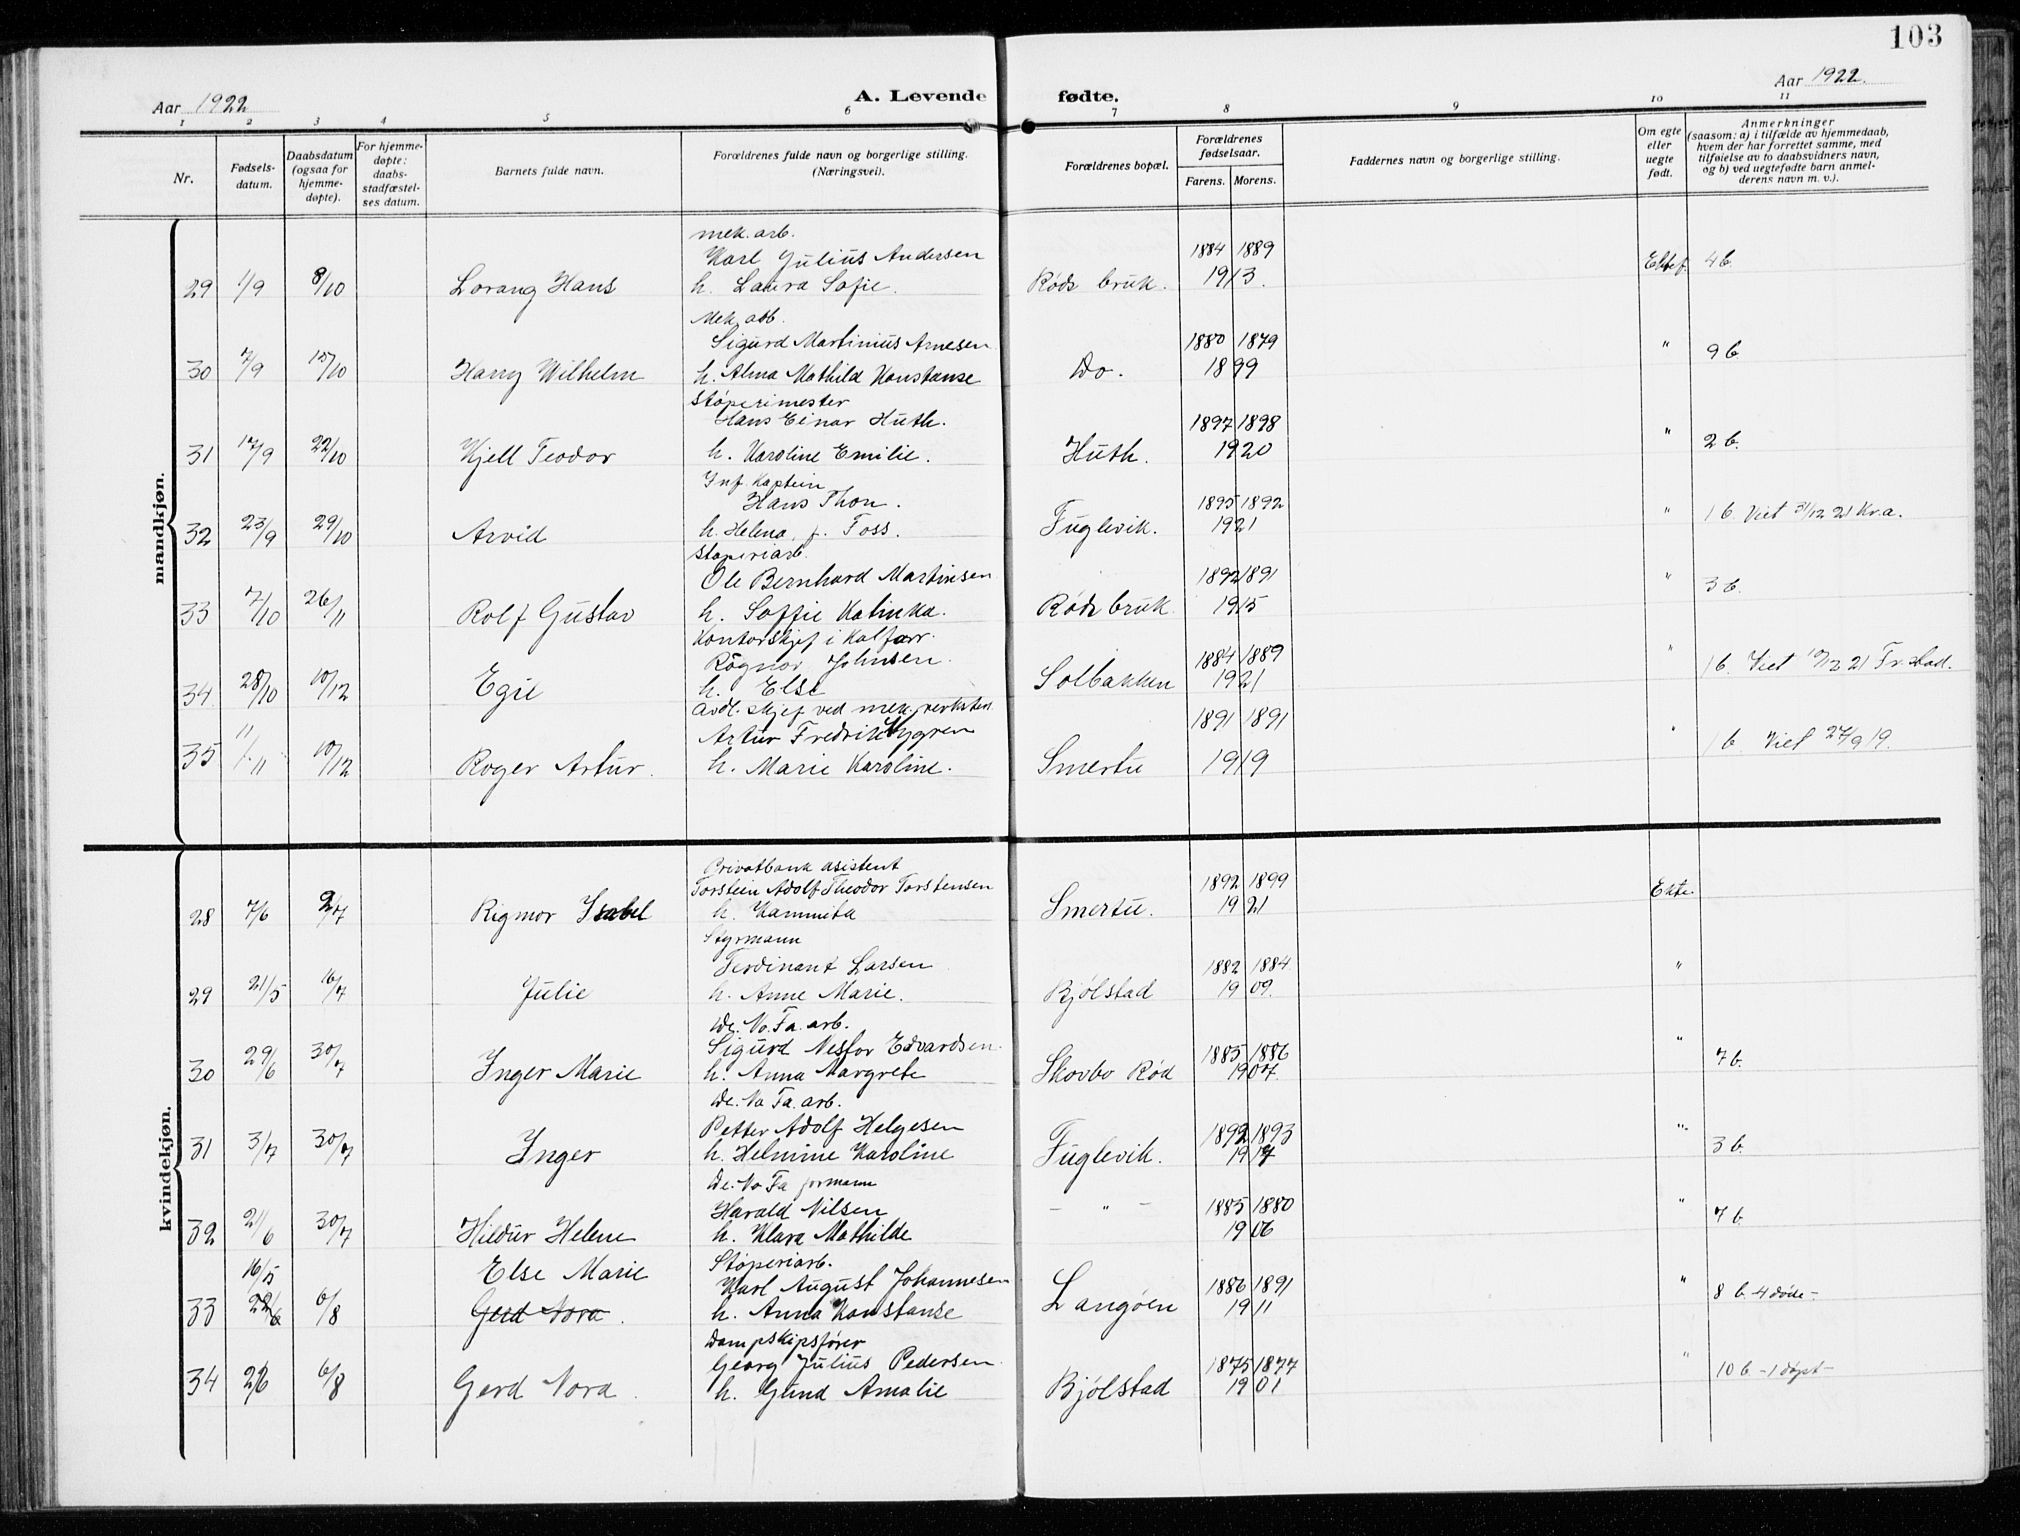 103
Aar 1922
A. Levende fødte.
Aar 1922.
1 2 3 4 5 6 7 8 9 10 11
Nr.
Fødsels-
datum.
Daabsdatum
(ogsaa for
hjemme-
døpte).
For hjemme-
døpte:
daabs-
stadfæstel-
ses datum.
Barnets fulde navn.
Forældrenes fulde navn og borgerlige stilling.
(Næringsvei).
Forældrenes bopæl.
Forældrenes
fødselsaar.
Farens. Morens.
Faddernes navn og borgerlige stilling.
Om egte
eller
uegte
født.
Anmerkninger
(saasom: a) i tilfælde av hjemmedaab,
hvem der har forrettet samme, med
tilføielse av to daabsvidners navn,
og b) ved uegtefødte barn anmel-
derens navn m. v.).
mandkjøn.
mek. arb.
Karl Julius Andersen 1884 1889 Ektef. 4 b.
29 1/9 8/10 Lorang Hans h. Laura Sofie. Røds bruk. 1913.
Mek. arb.
Sigurd Martinius Arnesen 1880 1879 " 9 b.
30 7/9 15/10 Harry Wilhelm h. Alma Mathild Konstanse Do. 1899
Støperimester
Hans Einar Huth. 1897 1898 " 2 b.
31 17/9 22/10 Kjell Teodor h. Karoline Emilie. Huth. 1920
Inf. Kaptein
Hans Thon. 1895 1892 " 1 b. Viet 31/12 21 Kr.a.
32 23/9 29/10 Arvid h. Helena, f. Foss. Fuglevik. 1921
Støperiarb.
Ole Bernhard Martinsen 1892 1891 " 3 b.
33 7/10 26/11 Rolf Gustav h. Soffie Katinka. Røds bruk 1915
Kontorskjef i Kalfarr.
Ragnar Johnsen. 1884 1889 " 1 b. Viet 10/12 21 Fr.stad.
34 28/10 10/12 Egil h. Else Solbakken 1921
avdl. skjef ved mek. verksted
Artur Fredrik Nygren 1891 1891 " 1 b. Viet 27/9 19.
35 11/11 10/12 Roger Artur. h. Marie Karoline. Smertu 1919
kvindekjøn.
Privatbank asistent
Torstein Adolf Theodor Torstensen 1892 1899 Ekte.
28 7/6 2/7 Rigmor Isabel h. Kammita Smertu. 1921
Styrmann
Ferdinant Larsen 1882 1884 "
29 21/5 16/7 Julie h. Anne Marie. Bjølstad 1909.
De. No. Fa. arb.
Sigurd Nesfor Edvardsen. 1885 1886 " 7 b.
30 29/6 30/7 Inger Marie h. Anna Margrete Skovbo Rød 1907.
De. No Fa. arb.
Petter Adolf Helgesen 1892 1893 " 3 b.
31 3/7 30/7 Inger h. Helmine Karoline Fuglevik. 1917
De. No Fa formann
Harald Nilsen – " – 1885 1880 " 7 b.
32 21/6 30/7 Hildur Helene h. Klara Mathilde 1906
16/5 Else Marie Støperiarb.
Karl August Johannesen 1886 1891 " 8 b. 4 døde –
33 22/6 6/8 Gerd Nora. h. Anna Konstanse Langøen 1911
Dampskipsfører
Georg Julius Pedersen 1875 1877 " 10 b – 1 døpt –
34 2/6 6/8 Gerd Nora. h. Gund Amalie Bjølstad 1901